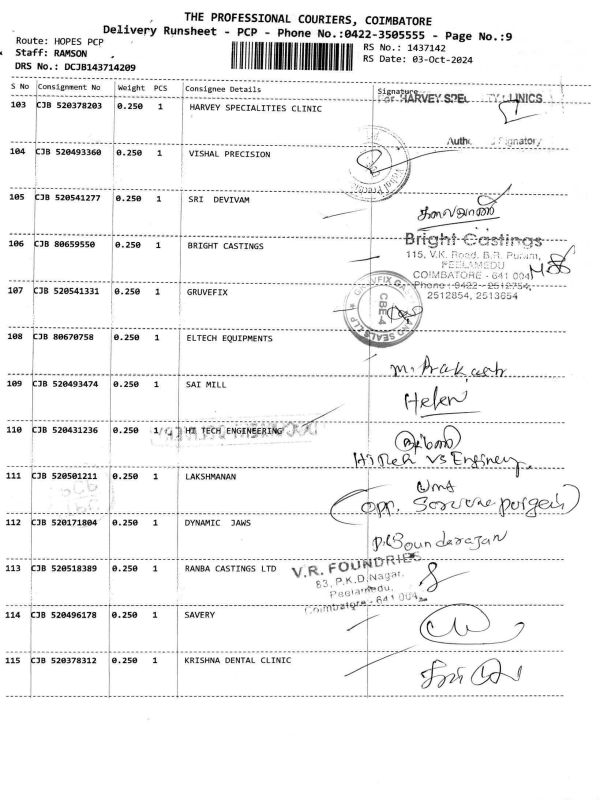 THE PROFESSIONAL COURIERS, COIMBATORE
Delivery Runsheet - PCP - Phone No.:0422-3505555 - Page No.:9
Route: HOPES PCP
RS No.: 1437142
Staff: RAMSON
RS Date: 03-Oct-2024
DRS No.: DCJB143714209
S No Consignment No Weight PCS Consignee Details Signature
For HARVEY SPEC
CLINICS
103 CJB 520378203 0.250 1 HARVEY SPECIALITIES CLINIC
Signatory
104 CJB 520493360 0.250 1 VISHAL PRECISION
Vishal
105 CJB 520541277 0.250 1 SRI DEVIVAM
கலைவாணி
106 CJB 80659550 0.250 1 BRIGHT CASTINGS
Bright Castings
115, V.K. Road, B.R. Puram,
PEELAMEDU
COIMBATORE - 641 004
Phone: 0422 - 2512754,
2512854, 2513654
107 CJB 520541331 0.250 1 GRUVEFIX
CBE-4
SEALS LLP
108 CJB 80670758 0.250 1 ELTECH EQUIPMENTS
M. Prakash
109 CJB 520493474 0.250 1 SAI MILL
Helen
110 CJB 520431236 0.250 1 HI TECH ENGINEERING
111 CJB 520501211 0.250 1 LAKSHMANAN
உமா
112 CJB 520171804 0.250 1 DYNAMIC JAWS
P. Soundarajan
113 CJB 520518389 0.250 1 RANBA CASTINGS LTD
V.R. FOUNDRIES
83, P.K.D.Nagar,
Peelamedu,
Coimbatore - 641 004.
114 CJB 520496178 0.250 1 SAVERY
115 CJB 520378312 0.250 1 KRISHNA DENTAL CLINIC